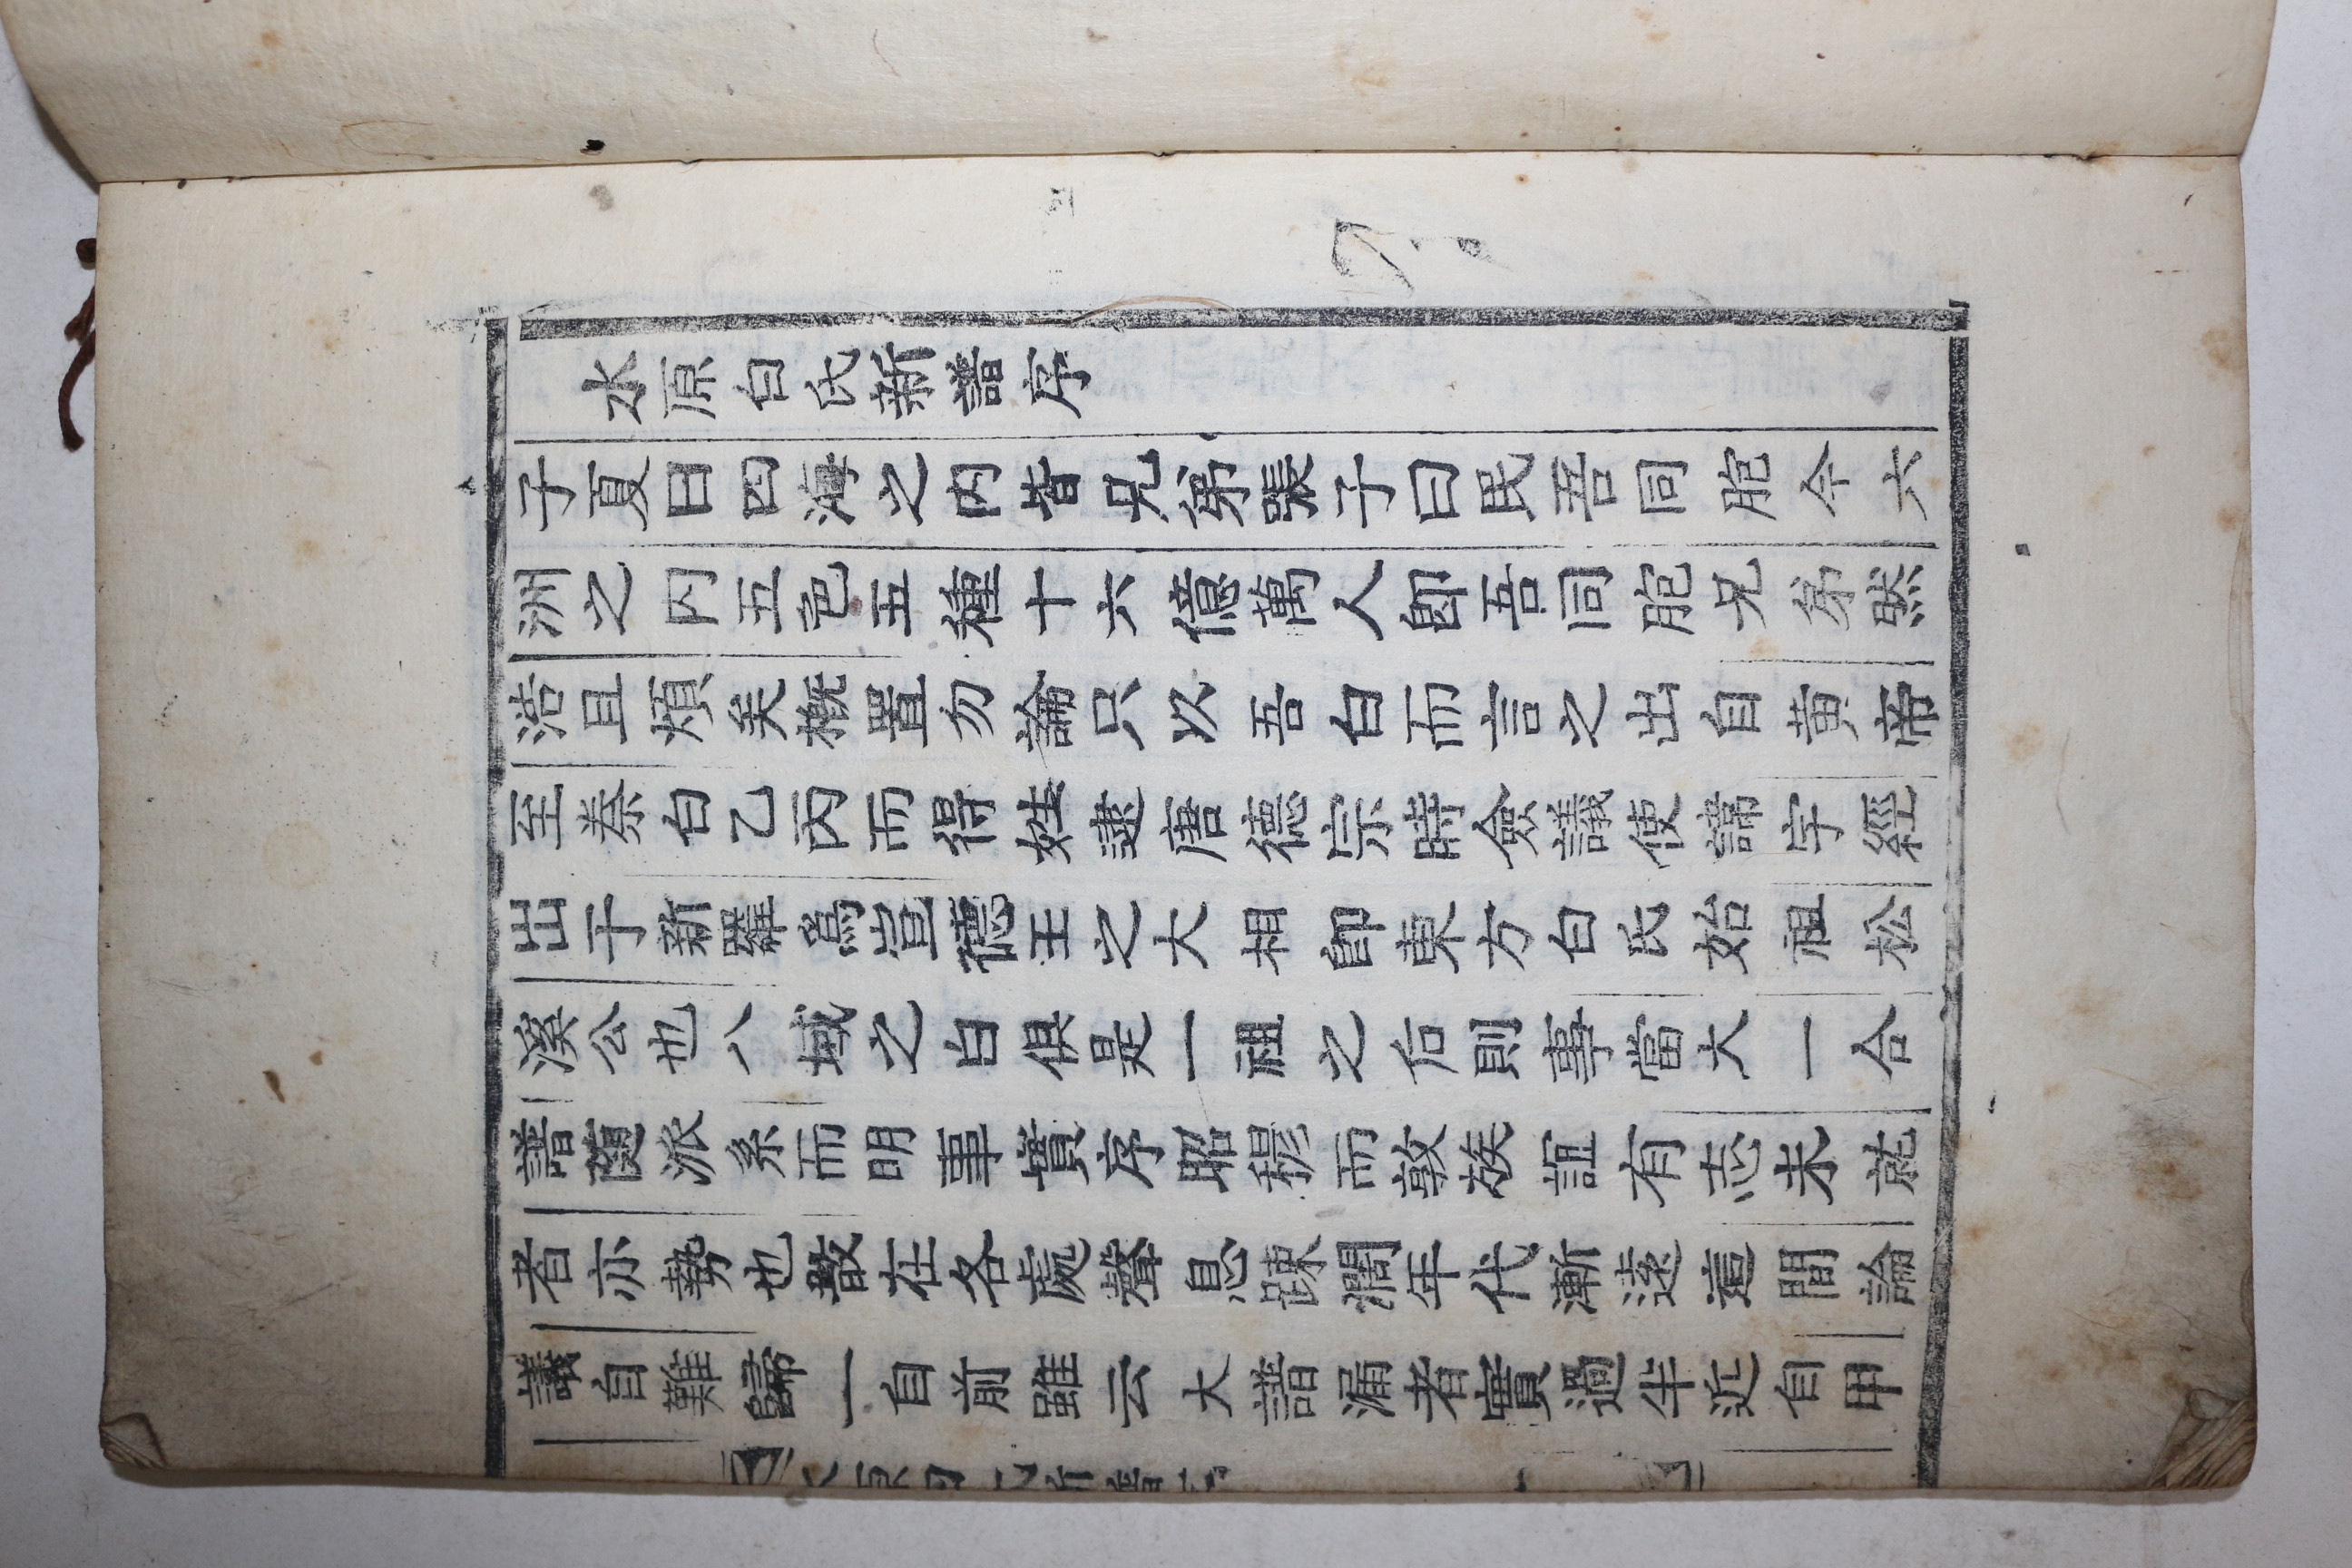 水原白氏新譜序
子夏曰四海之内皆兄弟張子曰民吾同胞今六
洲之内五色五種十六億萬人卽吾同胞兄弟然
浩且煩矣槪置勿論只以吾白而言之出自黄帝
至秦白乙丙而得姓逮唐德宗時僉議使諱宇經
出于新羅爲宣德王之大相卽東方白氏始祖松
溪公也八域之白俱是一祖之后則事當大一合
譜随派系而明事實序昭穆而敦族誼有志未就
者亦勢也散在各處聲息踈濶年代漸遠這間論
議自難歸一自前雖云大譜漏者實過半近自甲